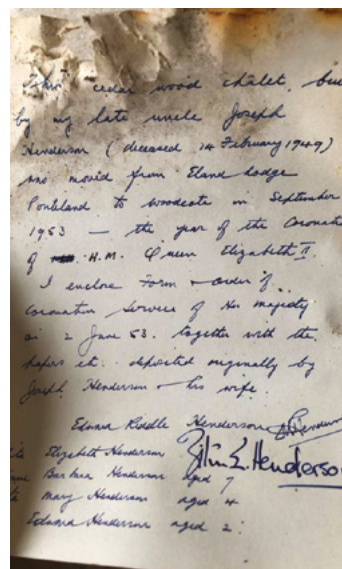 This cedar wood châlet, bui
by my late uncle Joseph
Henderson (deceased 14 February 1949)
was moved from Eland Lodge
Ponteland to Woodcote in September
1953 — the year of the Coronati
of H.M. Queen Elizabeth II.
I enclose Form & order of
Coronation Service of Her Majesty
on 2 June 53. together with the
papers etc. deposited originally by
Joseph Henderson & his wife.
Edward Riddle Henderson
Elizabeth Henderson
Barbara Henderson aged 7
Mary Henderson aged 4
Edward Henderson aged 2
E. Henderso